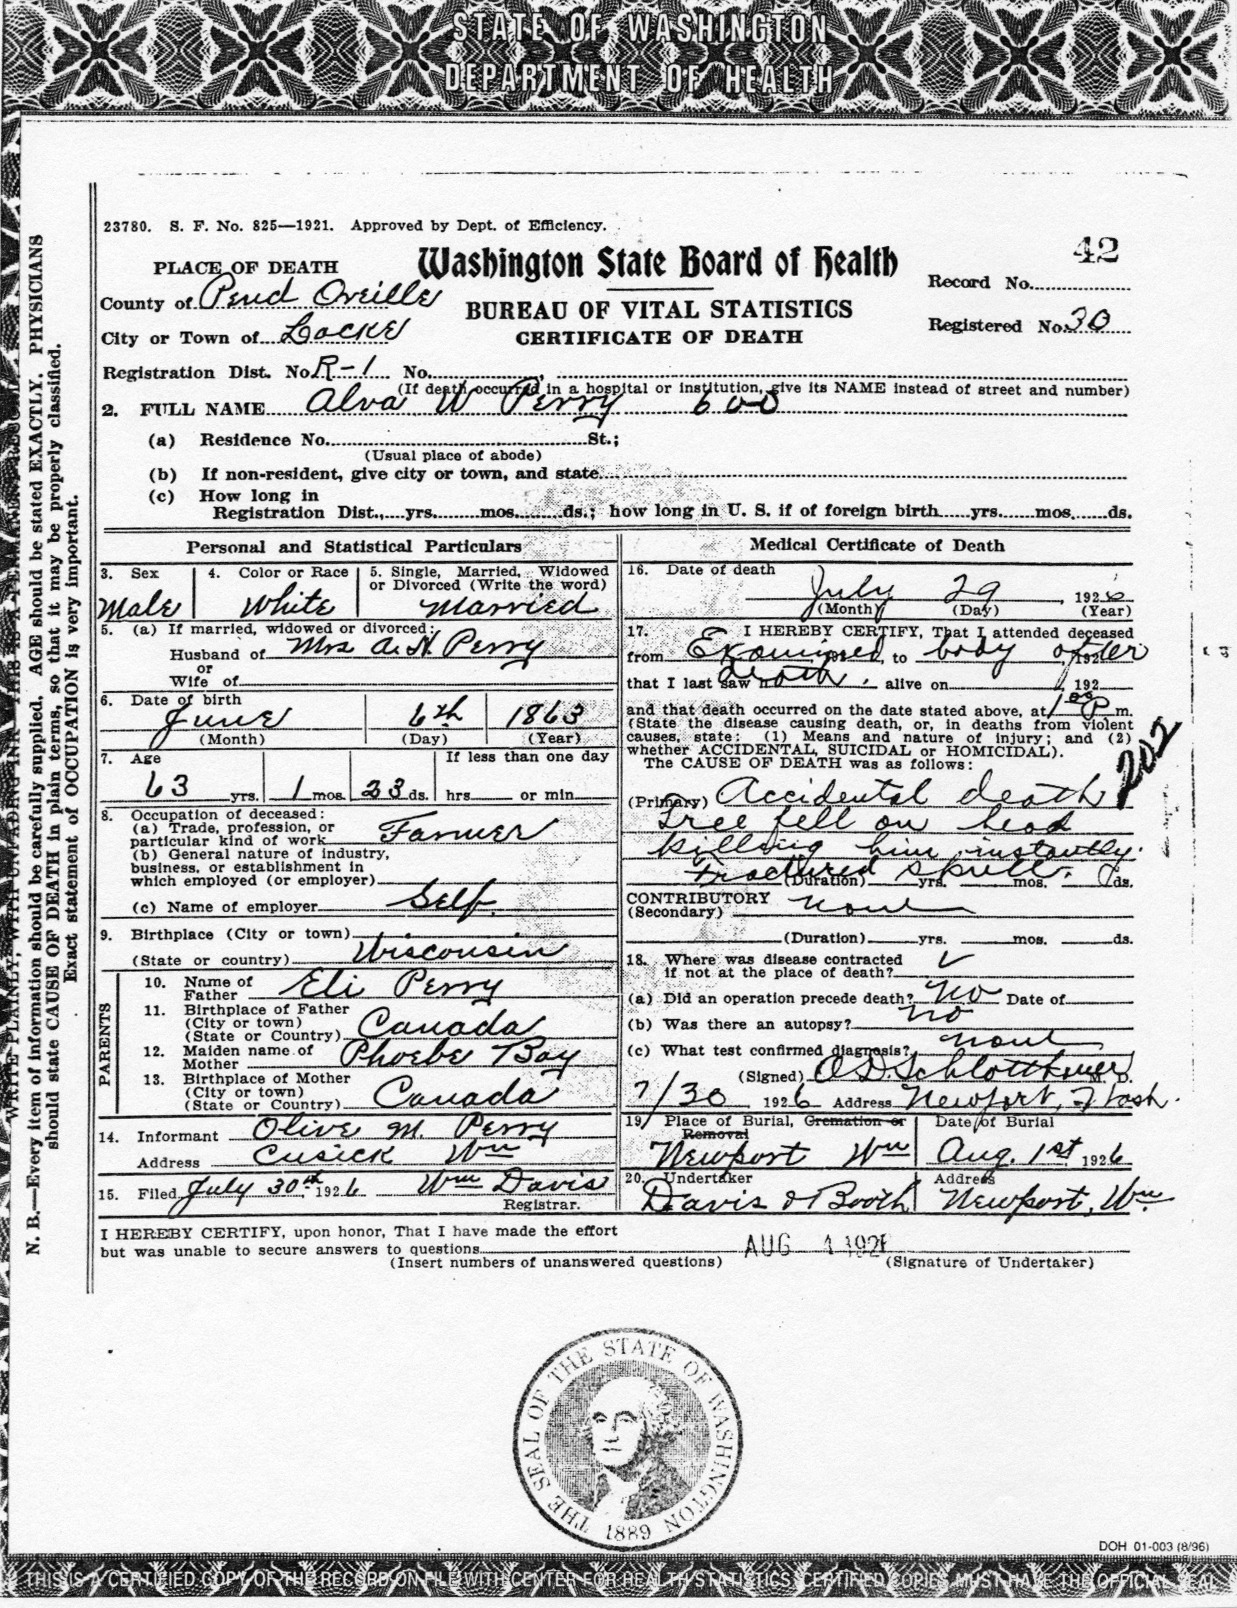 STATE OF WASHINGTON
DEPARTMENT OF HEALTH
23780. S. F. No. 825—1921. Approved by Dept. of Efficiency.
42
PLACE OF DEATH
Washington State Board of Health
Record No.
County of Pend Oreille
BUREAU OF VITAL STATISTICS
Registered No. 30
City or Town of Locke
CERTIFICATE OF DEATH
Registration Dist. No. R-1 No.
(If death occurred in a hospital or institution, give its NAME instead of street and number)
2. FULL NAME Alva W Perry 600
(a) Residence No. St.;
(Usual place of abode)
(b) If non-resident, give city or town, and state
(c) How long in
Registration Dist., yrs. mos. ds.; how long in U. S. if of foreign birth yrs. mos. ds.
Personal and Statistical Particulars
3. Sex
Male
4. Color or Race
White
5. Single, Married, Widowed
or Divorced (Write the word)
Married
5. (a) If married, widowed or divorced:
Husband of Mrs A. H. Perry
or
Wife of
6. Date of birth
June 6th 1863
(Month) (Day) (Year)
7. Age
If less than one day
63 yrs. 1 mos. 23 ds. hrs. or min.
8. Occupation of deceased:
(a) Trade, profession, or
particular kind of work Farmer
(b) General nature of industry,
business, or establishment in
which employed (or employer)
(c) Name of employer Self
9. Birthplace (City or town)
(State or country) Wisconsin
PARENTS
10. Name of
Father Eli Perry
11. Birthplace of Father
(City or town)
(State or Country) Canada
12. Maiden name of
Mother Phoebe Bay
13. Birthplace of Mother
(City or town)
(State or Country) Canada
14. Informant Olive M. Perry
Address Cusick Wn
15. Filed July 30th 1926 Wm Davis
Registrar.
Medical Certificate of Death
16. Date of death
July 29, 1926
(Month) (Day) (Year)
17. I HEREBY CERTIFY, That I attended deceased
from Examined, to body after, 192
that I last saw h death. alive on 192
and that death occurred on the date stated above, at 1 00 P m.
(State the disease causing death, or, in deaths from violent
causes, state: (1) Means and nature of injury; and (2)
whether ACCIDENTAL, SUICIDAL or HOMICIDAL).
The CAUSE OF DEATH was as follows:
202
(Primary) Accidental death
Tree fell on head
killing him instantly.
Fractured skull.
(Duration) yrs. mos. ds.
CONTRIBUTORY none
(Secondary)
(Duration) yrs. mos. ds.
18. Where was disease contracted
if not at the place of death?
(a) Did an operation precede death? No Date of
(b) Was there an autopsy? no
(c) What test confirmed diagnosis? none
(Signed) M. D.
7/30 1926 Address Newport, Wash.
19. Place of Burial, Cremation or
Removal
Newport Wn
Date of Burial
Aug. 1st 1926
20. Undertaker
Davis & Booth
Address
Newport, Wn
I HEREBY CERTIFY, upon honor, That I have made the effort
but was unable to secure answers to questions
AUG 192
(Insert numbers of unanswered questions) (Signature of Undertaker)
N. B.—Every item of information should be carefully supplied. AGE should be stated EXACTLY. PHYSICIANS
should state CAUSE OF DEATH in plain terms, so that it may be properly classified.
Exact statement of OCCUPATION is very important.
THE SEAL OF THE STATE OF WASHINGTON
1889
DOH 01-003 (8/96)
THIS IS A CERTIFIED COPY OF THE RECORD ON FILE WITH CENTER FOR HEALTH STATISTICS CERTIFIED COPIES MUST HAVE THE OFFICIAL SEAL